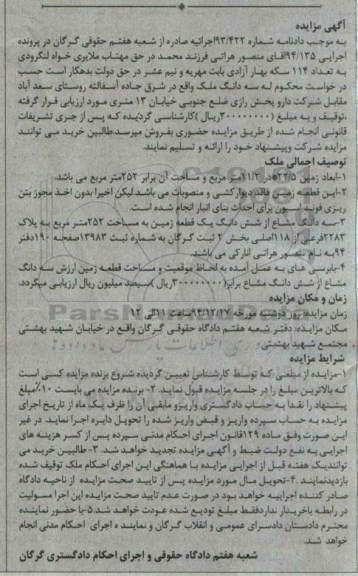 آگهی مزایده
به موجب دادنامه شماره ۹۳/۴۲۲اجرائیه صادره از شعبه هفتم حقوقی گرگان در پرونده
اجرایی ۹۴/۱۳۵آقای منصور هراتی فرزند محمد در حق مهتاب ملایری خواه لنگرودی
به تعداد ۱۱۴ سکه بهار آزادی بابت مهریه و نیم عشر در حق دولت بدهکار است حسب
در خواست محکوم له سه دانگ ملک واقع در شرق جاده آسفالته روستای سعد آباد
مقابل شرکت دارو پخش رازی ضلع جنوبی خیابان ۱۲ متری مورد ارزیابی قرار گرفته
،توقیف و به مبلغ (۳۰۰۰۰۰۰۰۰ریال )کارشناسی گردیده که پس از جری تشریفات
قانونی انجام شده از طریق مزایده حضوری بفروش میرسد.طالبین خرید می توانند
مزایده شرکت وپیشنهاد خود را ارائه و تسلیم نمایند.
توصیف اجمالی ملک
۱-ابعاد زمین ۲۲/۵در ۱۱/۲متر مربع و مساحت آن برابر ۲۵۲متر مربع می باشد.
۲-این قطعه زمین فاقد دیوارکشی و منصوبات می باشد لیکن اخیرا بدون اخذ مجوز بتن
ریزی فونداسیون برای احداث بنای انبار انجام شده است.
۳-سه دانگ مشاع از شش دانگ یک قطعه زمین به مساحت ۲۵۲متر مربع به پلاک
۲۲۸۳فرعی از ۱۱۸اصلی بخش ۲ ثبت گرگان به شماره ثبت ۱۳۹۸۳صفحه ۱۹۰دفتر
۹۴به نام منصور هراتی انارکی می باشد.
۴-بابرسی های به عمل آمده به لحاظ موقعیت و مساحت قطعه زمین ارزش سه دانگ
مشاع از شش دانگ مشاع برابر(۳۰۰۰۰۰۰۰۰ریال )سیصد میلیون ریال ارزیابی میگردد.
زمان و مکان مزایده
زمان مزایده: روز دوشنبه مورخه ۹۴/۱۲/۱۷ساعت ۱۱الی ۱۲
مکان مزایده: دفتر شعبه هفتم دادگاه حقوقی گرگان واقع در خیابان شهید بهشتی
مجتمع شهید بهشتی
شرایط مزایده
۱-مزایده از مبلغی که توسط کارشناس تعیین گردیده شروع برنده مزایده کسی است
که بالاترین مبلغ را در جلسه مزایده قبول نماید. ۲- برنده مزایده می بایست ۱۰٪مبلغ
پیشنهاد را نقدا به حساب دادگستری واریزو مابقی آن را ظرف یک ماه از تاریخ اجرای
مزایده به حساب سپرده واریز و قبض واریز شده را تحویل دایره اجرا نماید. در غیر
این صورت وفق ماده ۱۲۹قانون اجرای احکام مدنی سپرده پس از کسر هزینه های
اجرایی به نفع دولت ضبط و آگهی مزایده تجدید خواهد شد. ۳-طالبین خرید می
توانندیک هفته قبل از اجرای مزایده با هماهنگی این اجرای احکام ملک توقیف شده
بازدیدنمایند .۴-تحویل مال مورد مزایده پس از تایید صحت مزایده از ناحیه دادگاه
صادر کننده اجراییه خواهد بود در صورت عدم تایید صحت مزایده این اجرا مسولیت
در رابطه باخریدار نداردفقط مبلغ تودیع شده عودت خواهد شد.۵-با حضور نماینده
محترم دادستان دادسرای عمومی و انقلاب گرگان و نماینده اجرای احکام مدنی انجام
خواهد شد.
شعبه هفتم دادگاه حقوقی و اجرای احکام دادگستری گرگان